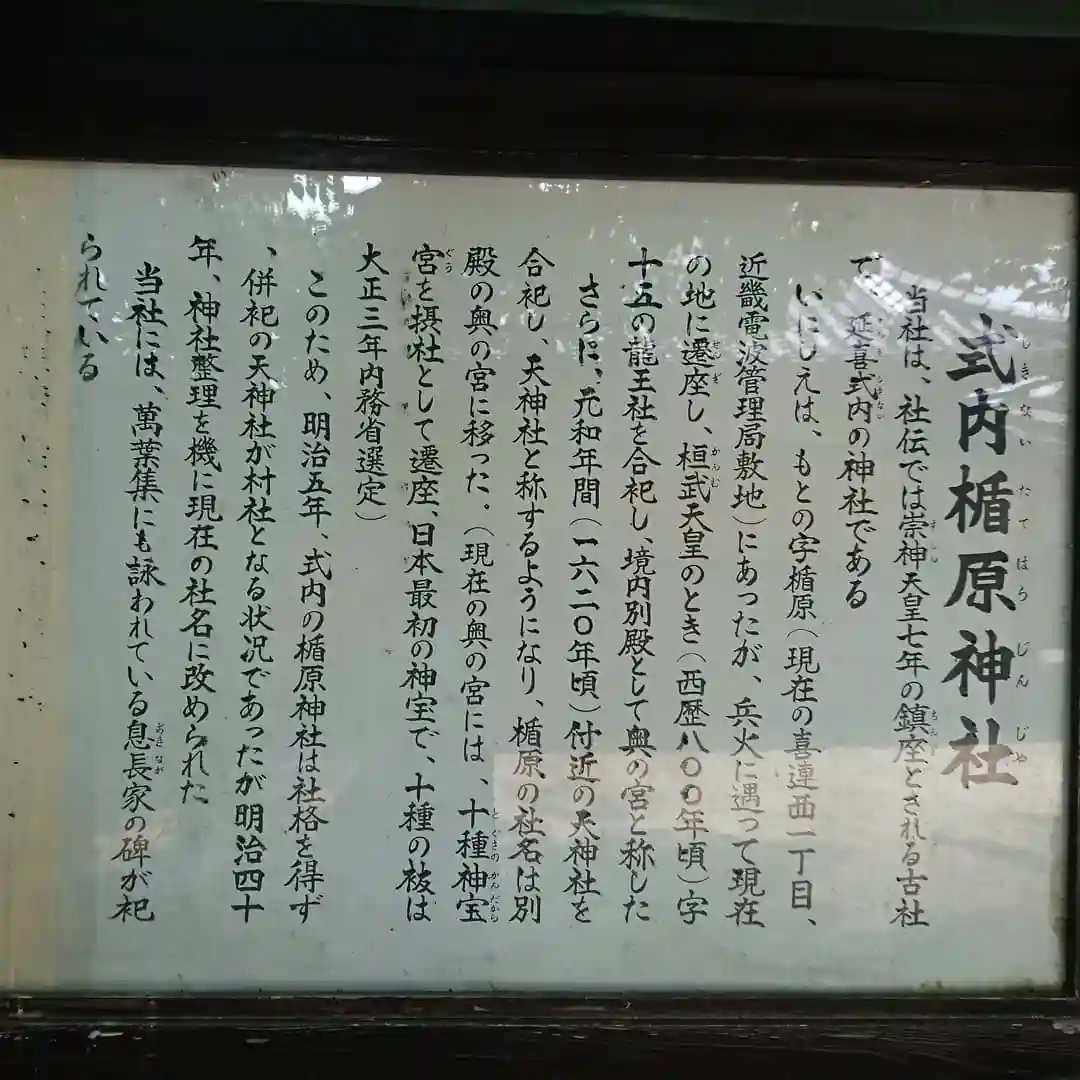 式内楯原神社
当社は、社伝では崇神天皇七年の鎮座とされる古社
で、延喜式内の神社である
いにしえは、もとの字楯原(現在の喜連西一丁目、
近畿電波管理局敷地)にあったが、兵火に遇って現在
の地に遷座し、桓武天皇のとき(西歴八〇〇年頃)字
十五の龍王社を合祀し、境内別殿として奥の宮と称した
さらに、元和年間(一六二〇年頃)付近の天神社を
合祀し、天神社と称するようになり、楯原の社名は別
殿の奥の宮に移った。(現在の奥の宮には、十種神宝
宮を摂社として遷座、日本最初の神宝で、十種の祓は
大正三年内務省選定)
このため、明治五年、式内の楯原神社は社格を得ず
、併祀の天神社が村社となる状況であったが明治四十
年、神社整理を機に現在の社名に改められた
当社には、萬葉集にも詠われている息長家の碑が祀
られている